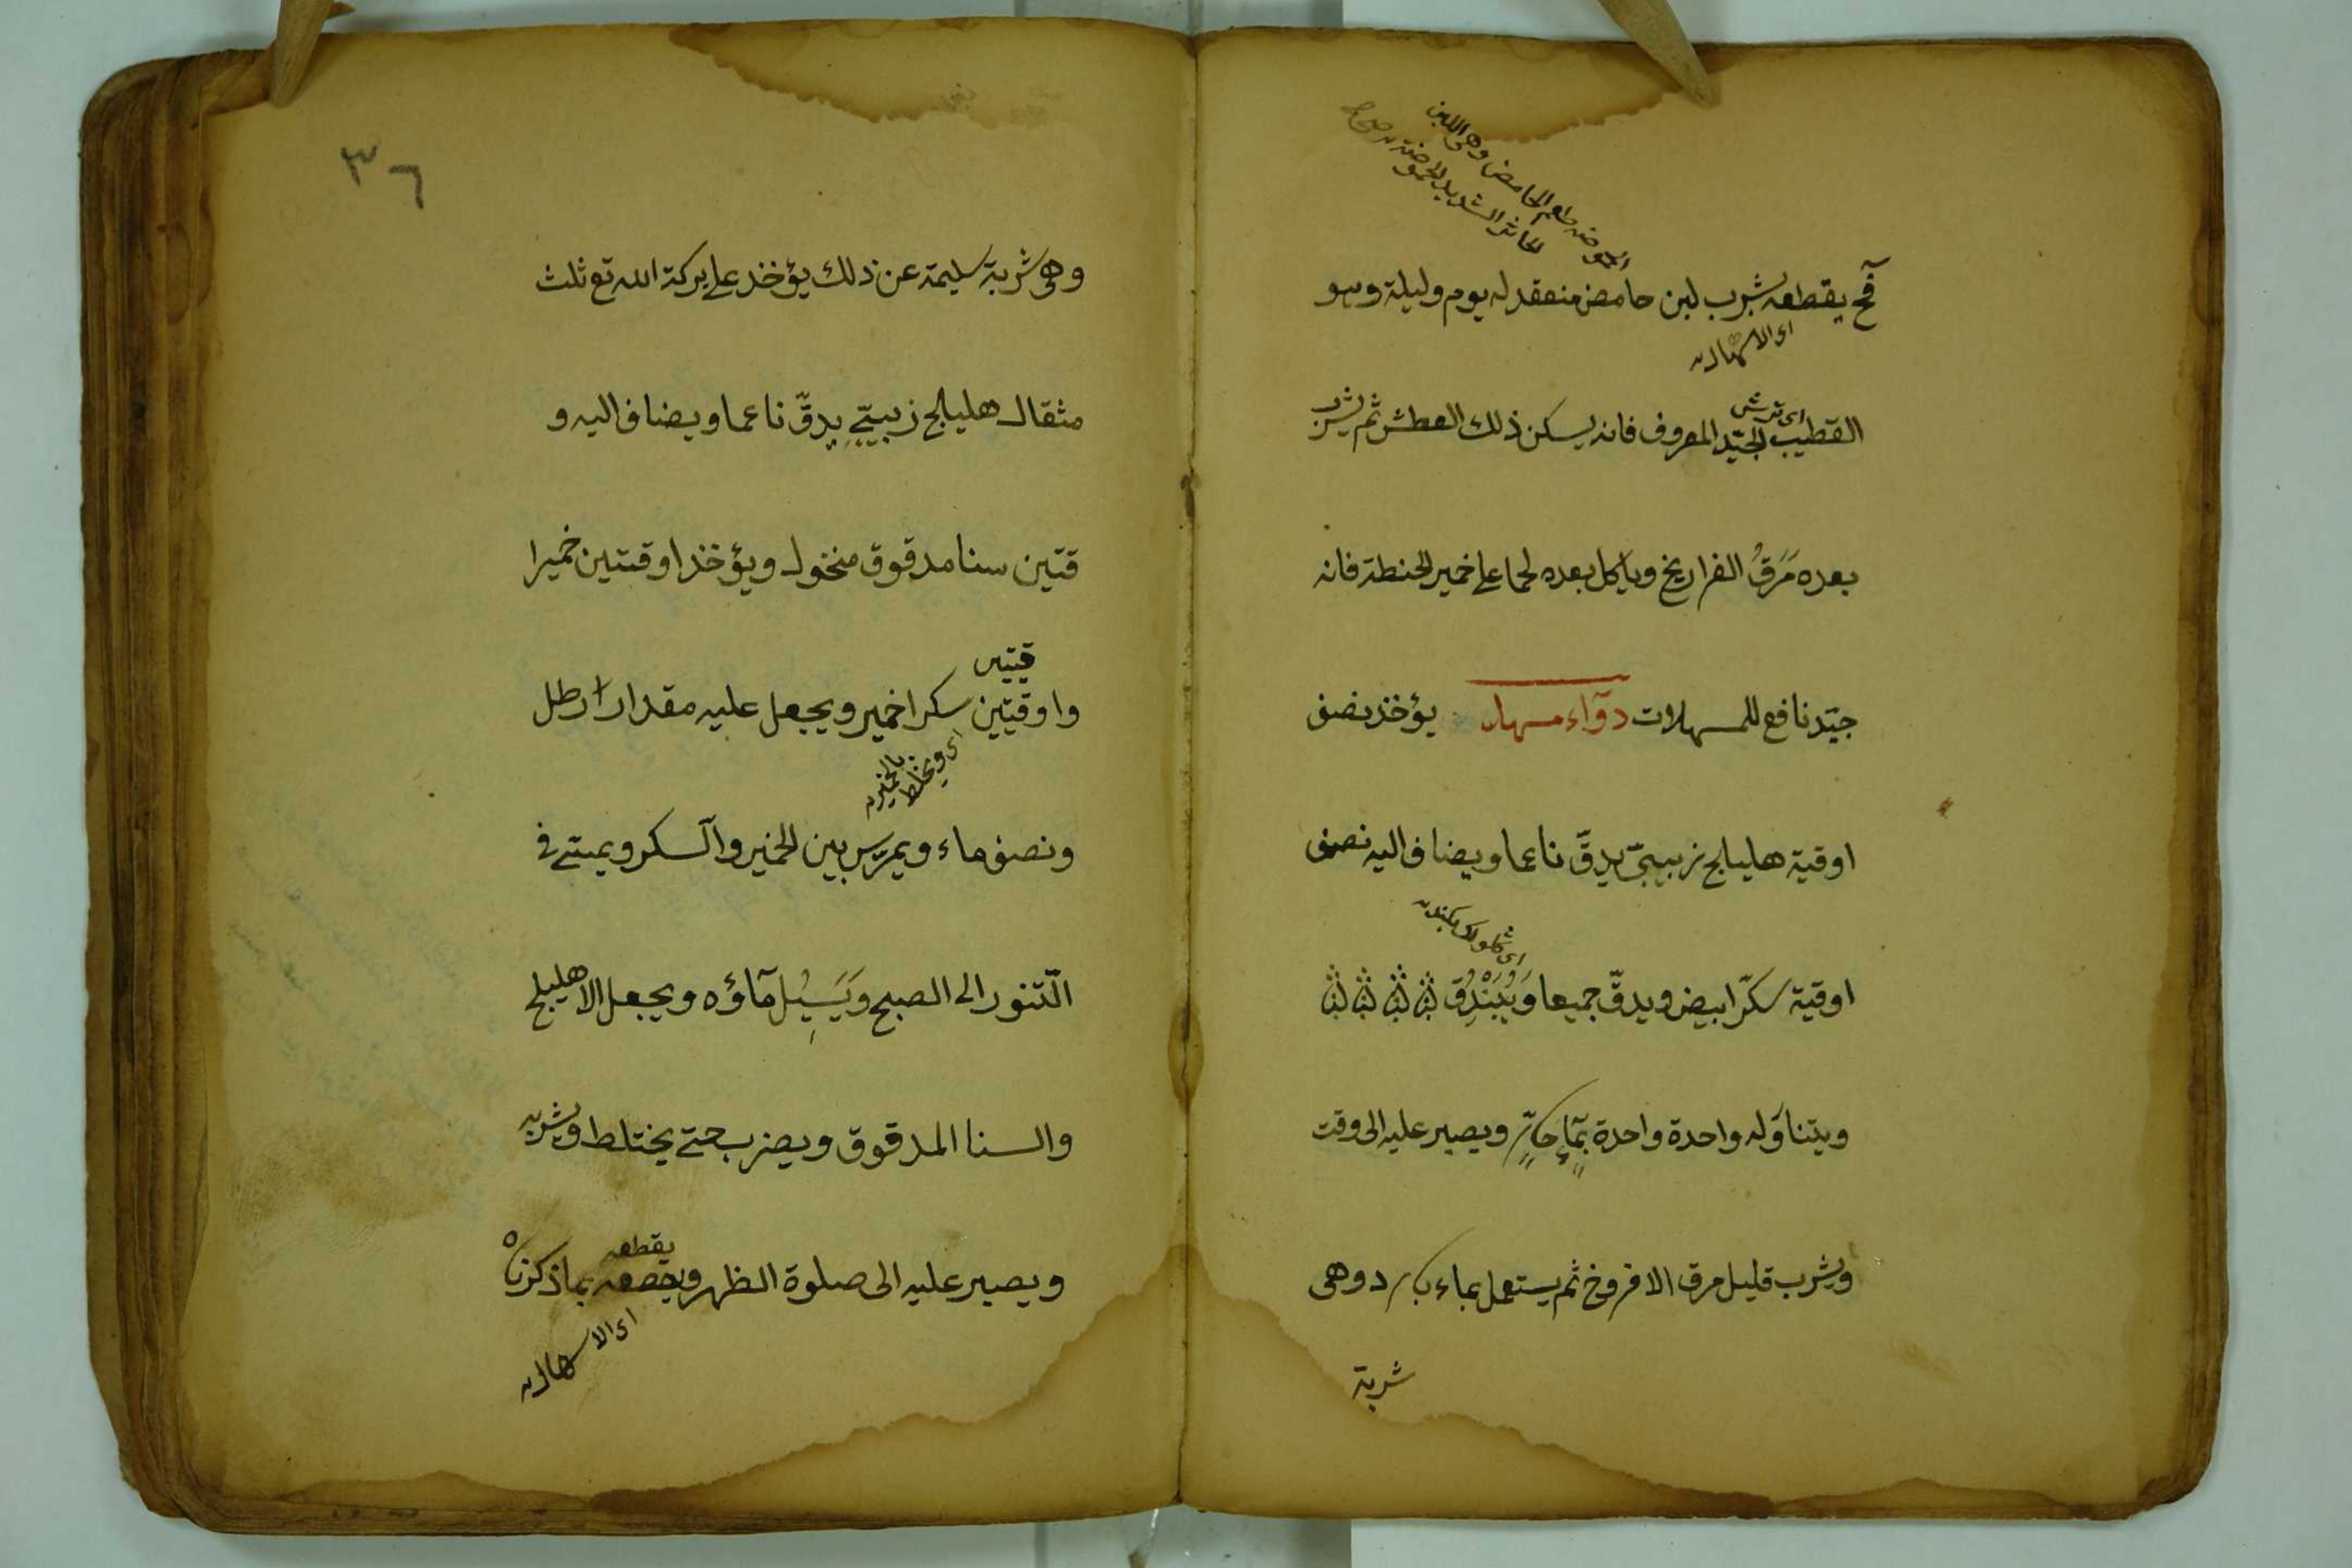 الحموضة طعم الحامض وهى اللبن
الخاثر الشديد الحموضة
قح يقطعه بشرب لبن حامض منعقد له يوم وليلة وهو
اى الاسهال
القطيب الجيّد المعروف فانه يسكن ذلك العطش ثم يشرب
بعده مَرَقُ الفراريخ وياكل بعده لحما على خمير الحنطة فانه
جيّد نافع للمسهلات دوآء مسهل يؤخذ نصف
اوقية هليلج زبيبىّ يدقّ ناعما ويضاف اليه نصف
اوقية سكّر ابيض ويدقّ جميعا وَيُبَنْدَق
ويتناوله واحدة واحدة بمآءٍ حآرٍّ ويصبر عليه الى وقت
ويشرب قليل مرق الافروخ ثم يستعمل بماء بارد وهى
شربة
٣٦
وهى شربة سليمة عن ذلك يؤخذ على بركة الله تع ثلث
مثقال هليلج زبيبىّ يدقّ ناعما ويضاف اليه و
قتين سنا مدقوق منخول ويؤخذ اوقتين خميرا
قيتين
واوقيتين سكرا خمير ويجعل عليه مقدار رطل
اى ويخلط بالخمير
ونصف ماء ويمرّس بين الخمير والسكر ويبيّت فى
التّنور الى الصبح وَيَسِيْل مآؤه ويجعل الاهليلج
والسنا المدقوق ويضرب حتى يختلط ويشربه
يقطعه
ويصبر عليه الى صلوة الظهر ويقطعه بما ذكرناه
اى الاسهال